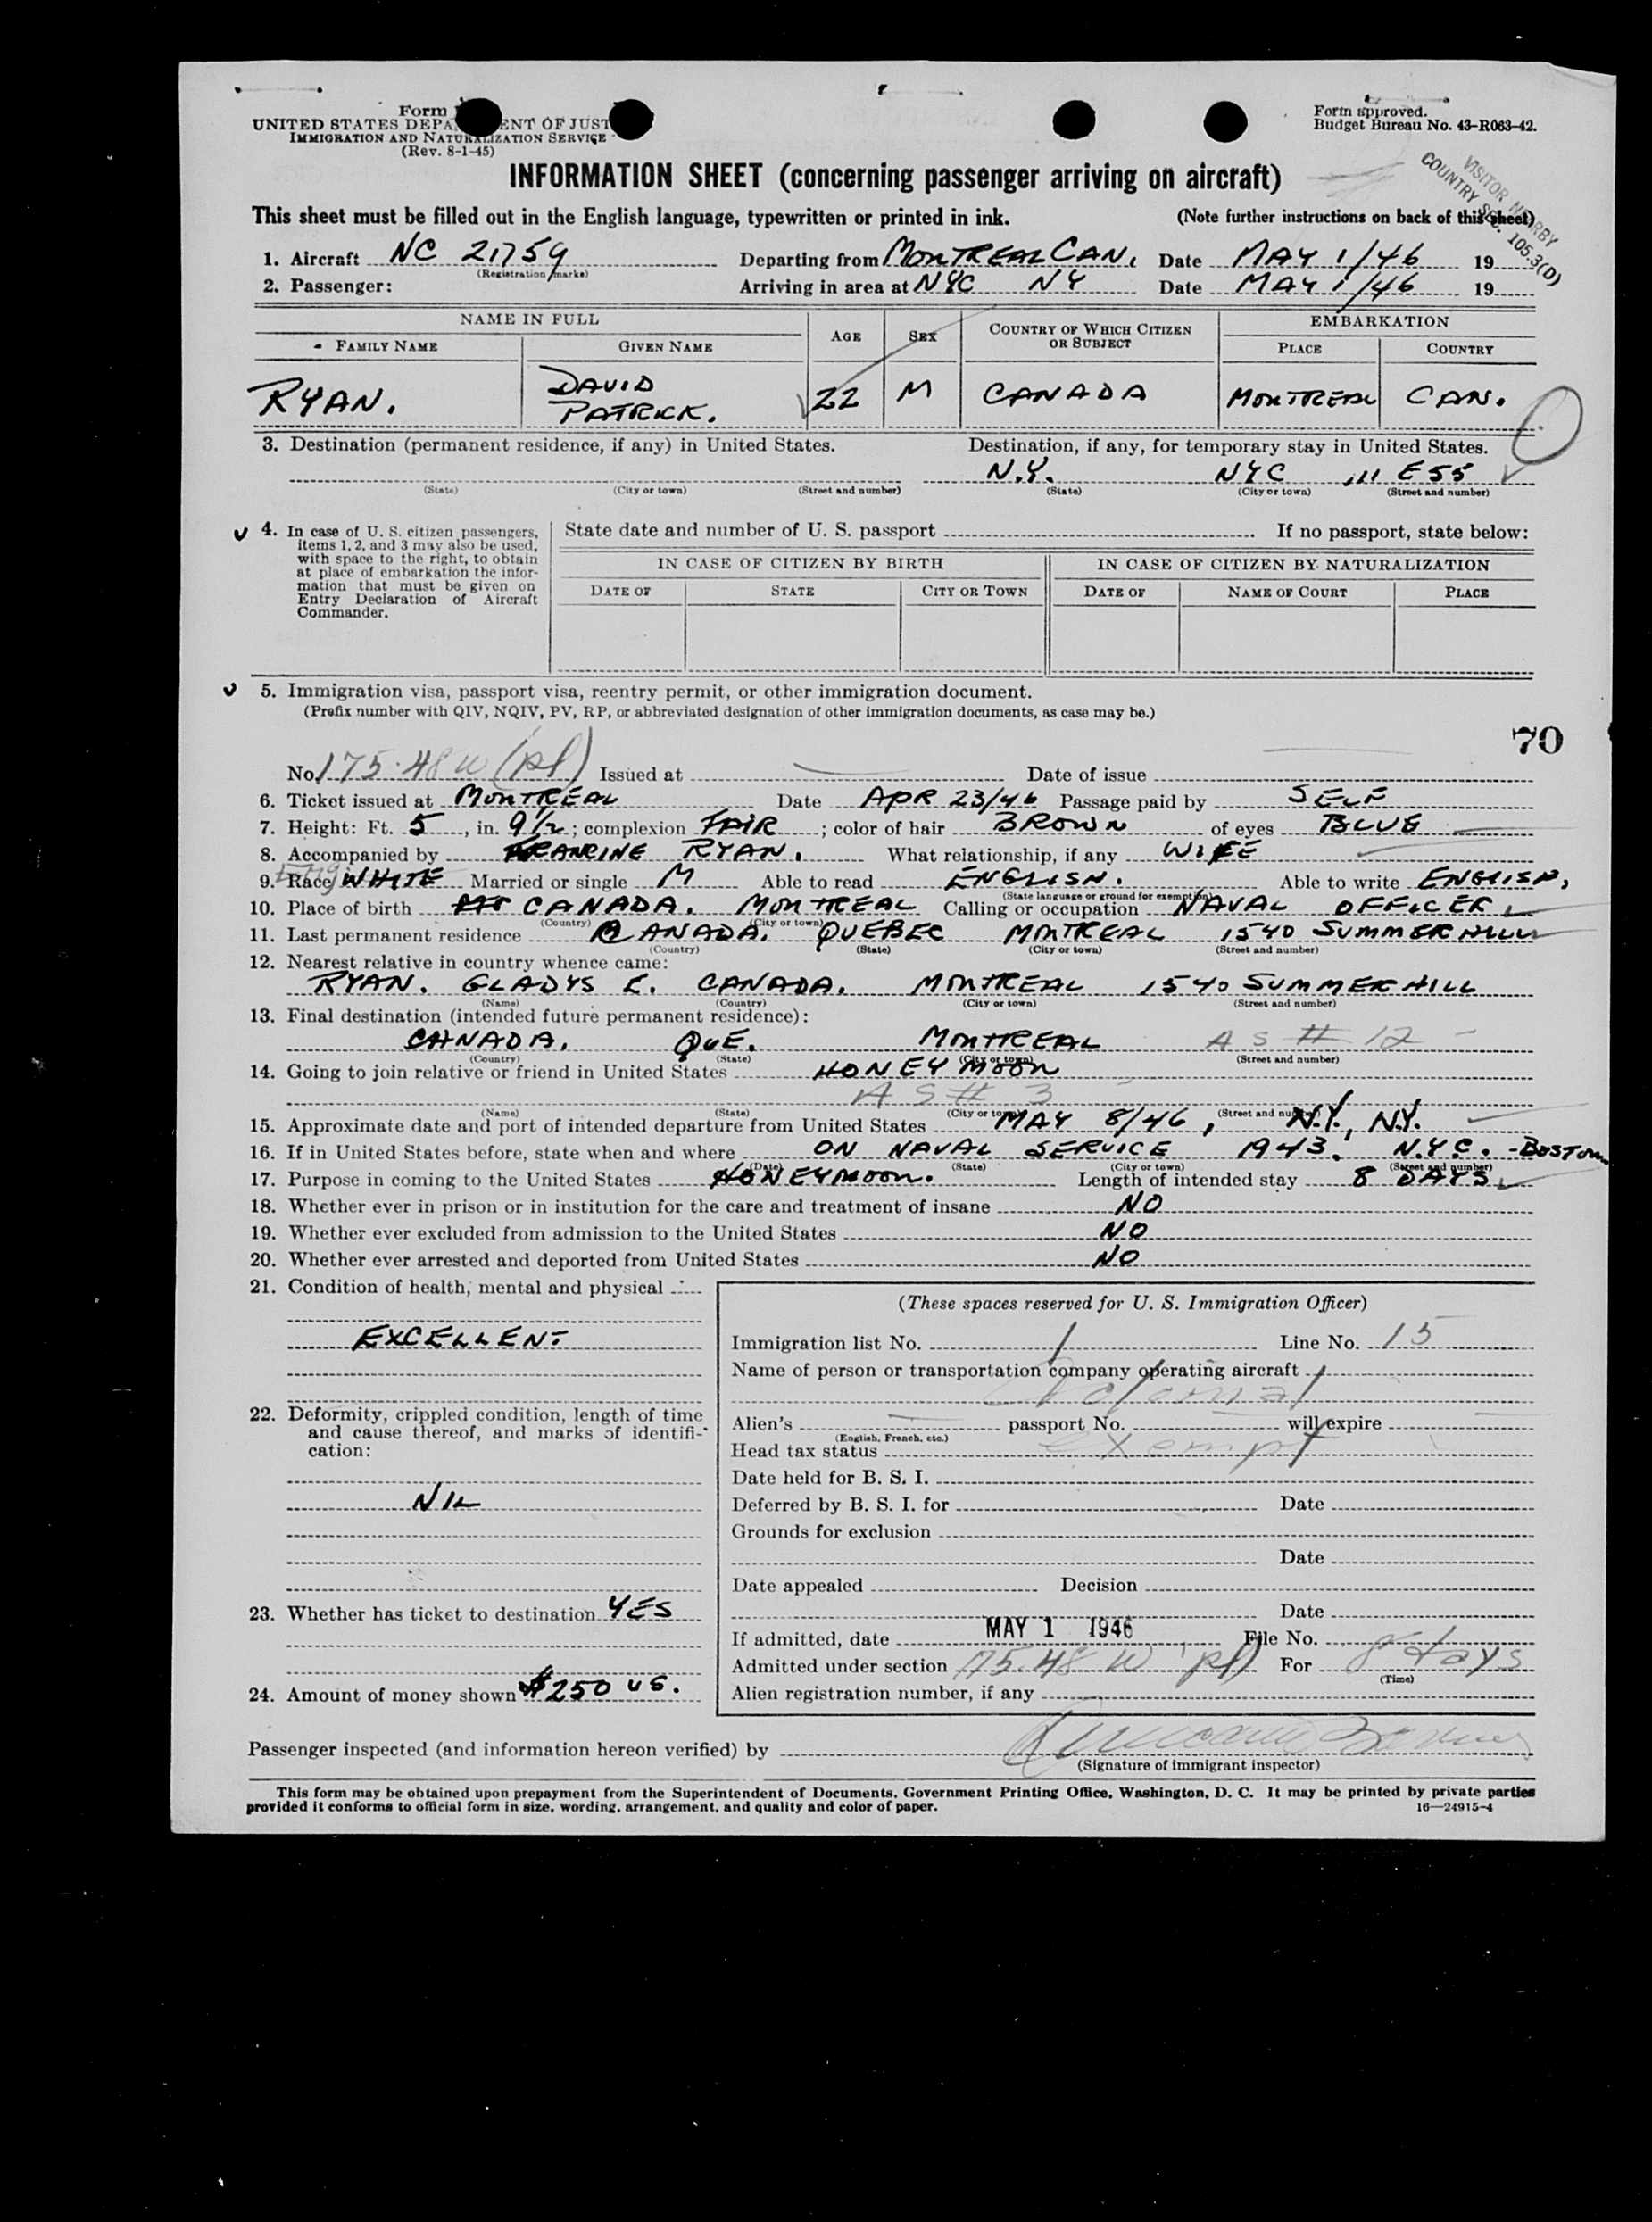 Form
UNITED STATES DEPA ENT OF JUST
IMMIGRATION AND NATURALIZATION SERVICE
(Rev. 8-1-45)
Form approved.
Budget Bureau No. 43-R063-42.
INFORMATION SHEET (concerning passenger arriving on aircraft)
VISITOR NEARBY
COUNTRY SEC. 105.3(D)
This sheet must be filled out in the English language, typewritten or printed in ink. (Note further instructions on back of this sheet)
1. Aircraft NC 21759 Departing from MONTREAL CAN. Date MAY 1/46 19
(Registration marks)
2. Passenger: Arriving in area at NYC NY Date MAY 1/46 19
NAME IN FULL AGE SEX COUNTRY OF WHICH CITIZEN OR SUBJECT EMBARKATION
FAMILY NAME GIVEN NAME PLACE COUNTRY
RYAN. DAVID PATRICK. 22 M CANADA MONTREAL CAN.
3. Destination (permanent residence, if any) in United States. Destination, if any, for temporary stay in United States.
N.Y. NYC 111 E55
(State) (City or town) (Street and number) (State) (City or town) (Street and number)
4. In case of U. S. citizen passengers, items 1, 2, and 3 may also be used, with space to the right, to obtain at place of embarkation the information that must be given on Entry Declaration of Aircraft Commander.
State date and number of U. S. passport If no passport, state below:
IN CASE OF CITIZEN BY BIRTH IN CASE OF CITIZEN BY NATURALIZATION
DATE OF STATE CITY OR TOWN DATE OF NAME OF COURT PLACE
5. Immigration visa, passport visa, reentry permit, or other immigration document.
(Prefix number with QIV, NQIV, PV, RP, or abbreviated designation of other immigration documents, as case may be.)
70
No. 175.48 W (pl) Issued at Date of issue
6. Ticket issued at MONTREAL Date APR 23/46 Passage paid by SELF
7. Height: Ft. 5, in. 9 1/2; complexion FAIR; color of hair BROWN of eyes BLUE
8. Accompanied by FRANCINE RYAN. What relationship, if any WIFE
9. Race WHITE Married or single M Able to read ENGLISH. Able to write ENGLISH,
(State language or ground for exemption)
10. Place of birth CANADA. MONTREAL Calling or occupation NAVAL OFFICER
(Country) (City or town)
11. Last permanent residence CANADA. QUEBEC MONTREAL 1540 SUMMERHILL
(Country) (State) (City or town) (Street and number)
12. Nearest relative in country whence came:
RYAN. GLADYS E. CANADA. MONTREAL 1540 SUMMERHILL
(Name) (Country) (City or town) (Street and number)
13. Final destination (intended future permanent residence):
CANADA. QUE. MONTREAL AS # 12
(Country) (State) (City or town) (Street and number)
14. Going to join relative or friend in United States HONEYMOON
AS # 3
(Name) (State) (City or town) (Street and number)
15. Approximate date and port of intended departure from United States MAY 8/46, N.Y., N.Y.
16. If in United States before, state when and where ON NAVAL SERVICE 1943. N.Y.C. - BOSTON
(Date) (State) (City or town) (Street and number)
17. Purpose in coming to the United States HONEYMOON. Length of intended stay 8 DAYS
18. Whether ever in prison or in institution for the care and treatment of insane NO
19. Whether ever excluded from admission to the United States NO
20. Whether ever arrested and deported from United States NO
21. Condition of health, mental and physical
EXCELLENT
22. Deformity, crippled condition, length of time and cause thereof, and marks of identification:
NIL
23. Whether has ticket to destination YES
24. Amount of money shown $250 US.
(These spaces reserved for U. S. Immigration Officer)
Immigration list No. 1 Line No. 15
Name of person or transportation company operating aircraft
Colonial
Alien's passport No. will expire
(English, French, etc.)
Head tax status exempt
Date held for B. S. I.
Deferred by B. S. I. for Date
Grounds for exclusion
Date
Date appealed Decision
Date
If admitted, date MAY 1 1946 File No.
Admitted under section 175.48 W pl) For 8 days
(Time)
Alien registration number, if any
Passenger inspected (and information hereon verified) by
(Signature of immigrant inspector)
This form may be obtained upon prepayment from the Superintendent of Documents, Government Printing Office, Washington, D. C. It may be printed by private parties
provided it conforms to official form in size, wording, arrangement, and quality and color of paper. 16—24915-4